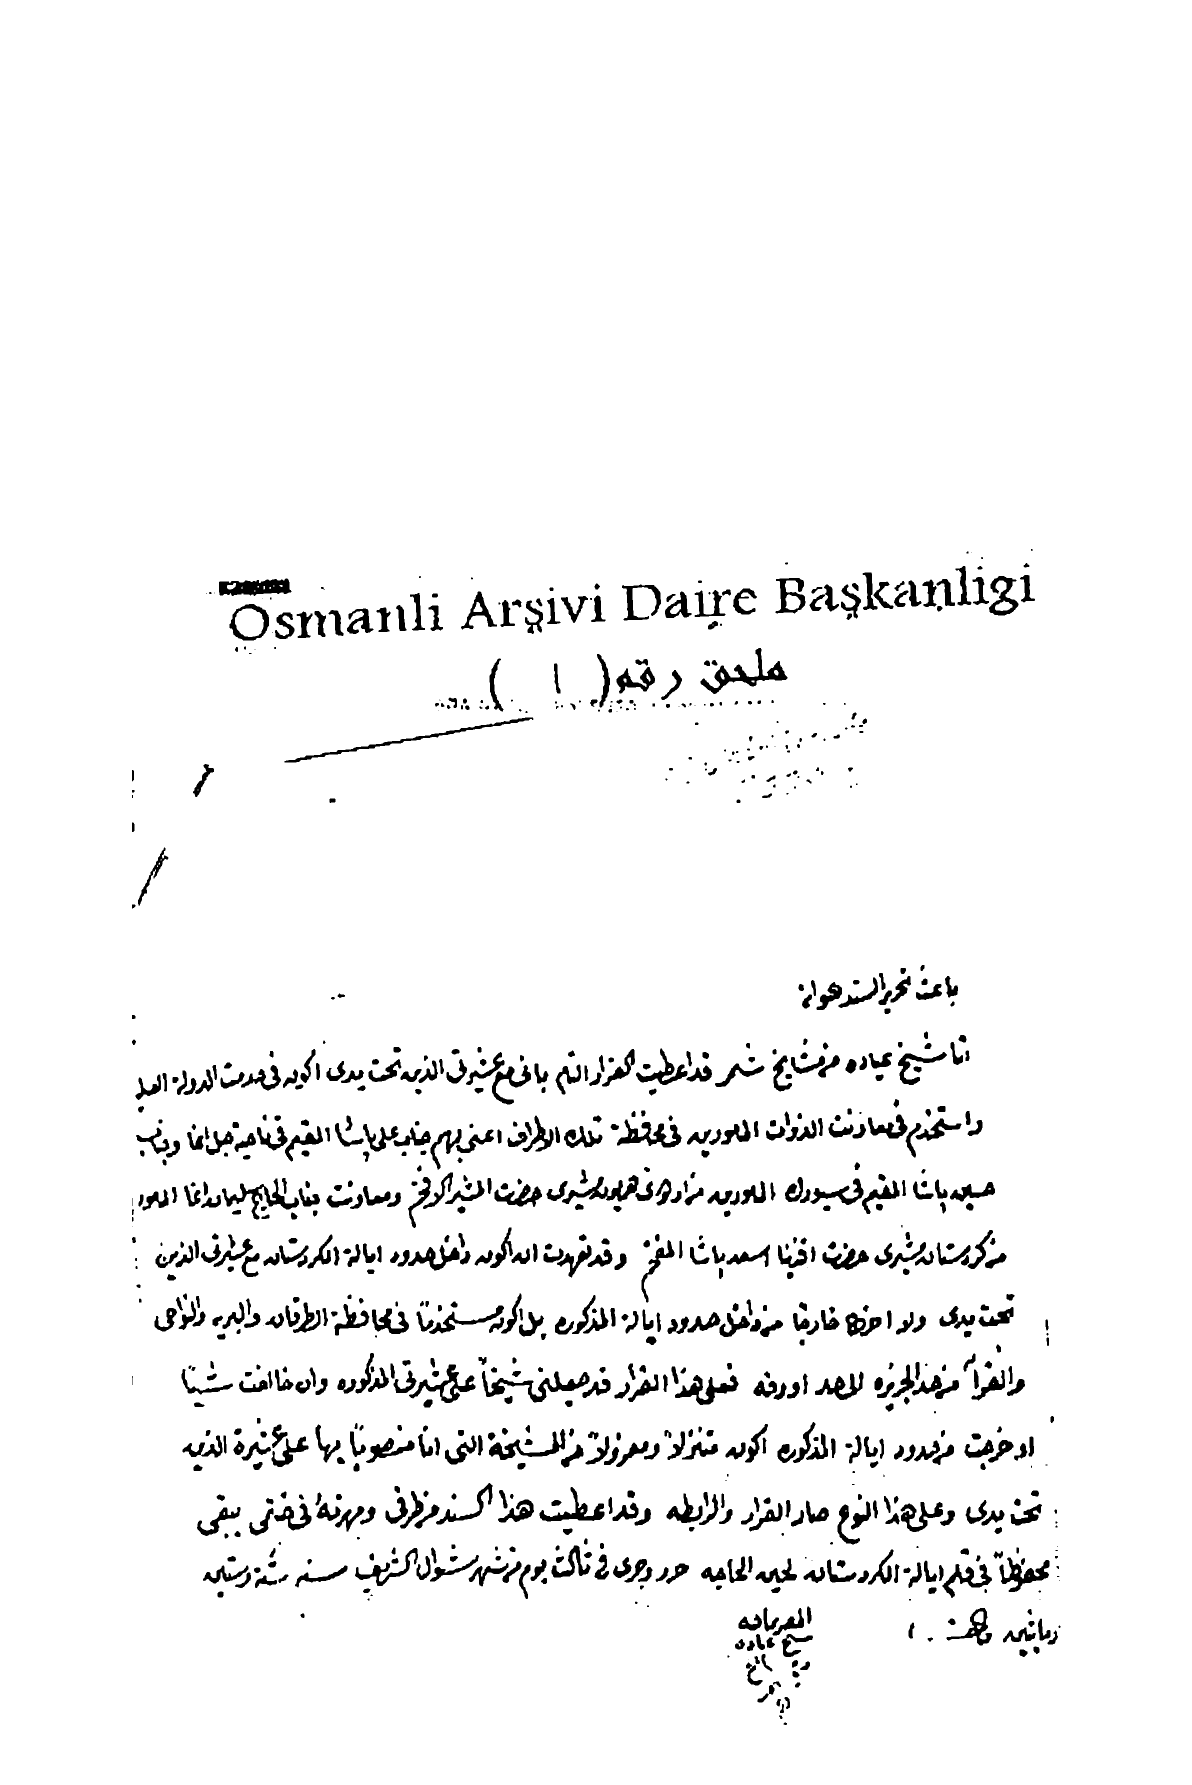 Osmanli Arşivi Daire Başkanligi
ملحق رقم ( ١ )
باعث تحرير السند هوانه
انا شيخ عباده من مشايخ شمر قد اعطيت القرار التام باني مع عشيرتي الذين تحت يدي اكون في خدمت الدولة العليه
واستخدم في معاونت الذوات المامورين في محافظة تلك الاطراف اعني بهم جناب علي پاشا المقيم في ناحية جبل اغا وجناب
حسين پاشا المقيم في سيورك المامورين من اردوي همايون مشيري حضرت المشير الافخم ومعاونت جناب الحاج سليمان اغا المامور
من كردستان مشيري حضرت افندينا اسعد پاشا المفخم وقد تعهدت ان اكون داخل حدود ايالة الكردستان مع عشيرتي الذين
تحت يدي ولا اخرج خارجا من داخل حدود ايالة المذكوره بل اكون مستخدما في محافظة الطرقان والبريه والنواحي
والقرآ من حد الجزيره الى حد اورفه فعلى هذا القرار قد جعلني شيخاً على عشيرتي المذكوره وان خالفت شيئا
او خرجت من حدود ايالة المذكوره اكون متنزلاً ومعزولاً من المشيخة التي انا منصوباً بها على عشيرة الذين
تحت يدي وعلى هذا النوع صار القرار والرابطه وقد اعطيت هذا السند من طرفي ومهرته في ختمي يبقى
محفوظاً في قلم ايالة الكردستان لحين الحاجه حرر وجرى في ثالث يوم من شهر شوال الشريف سنه ستة وستين
ومايتين والف
المقر بمافيه
شيخ عباده